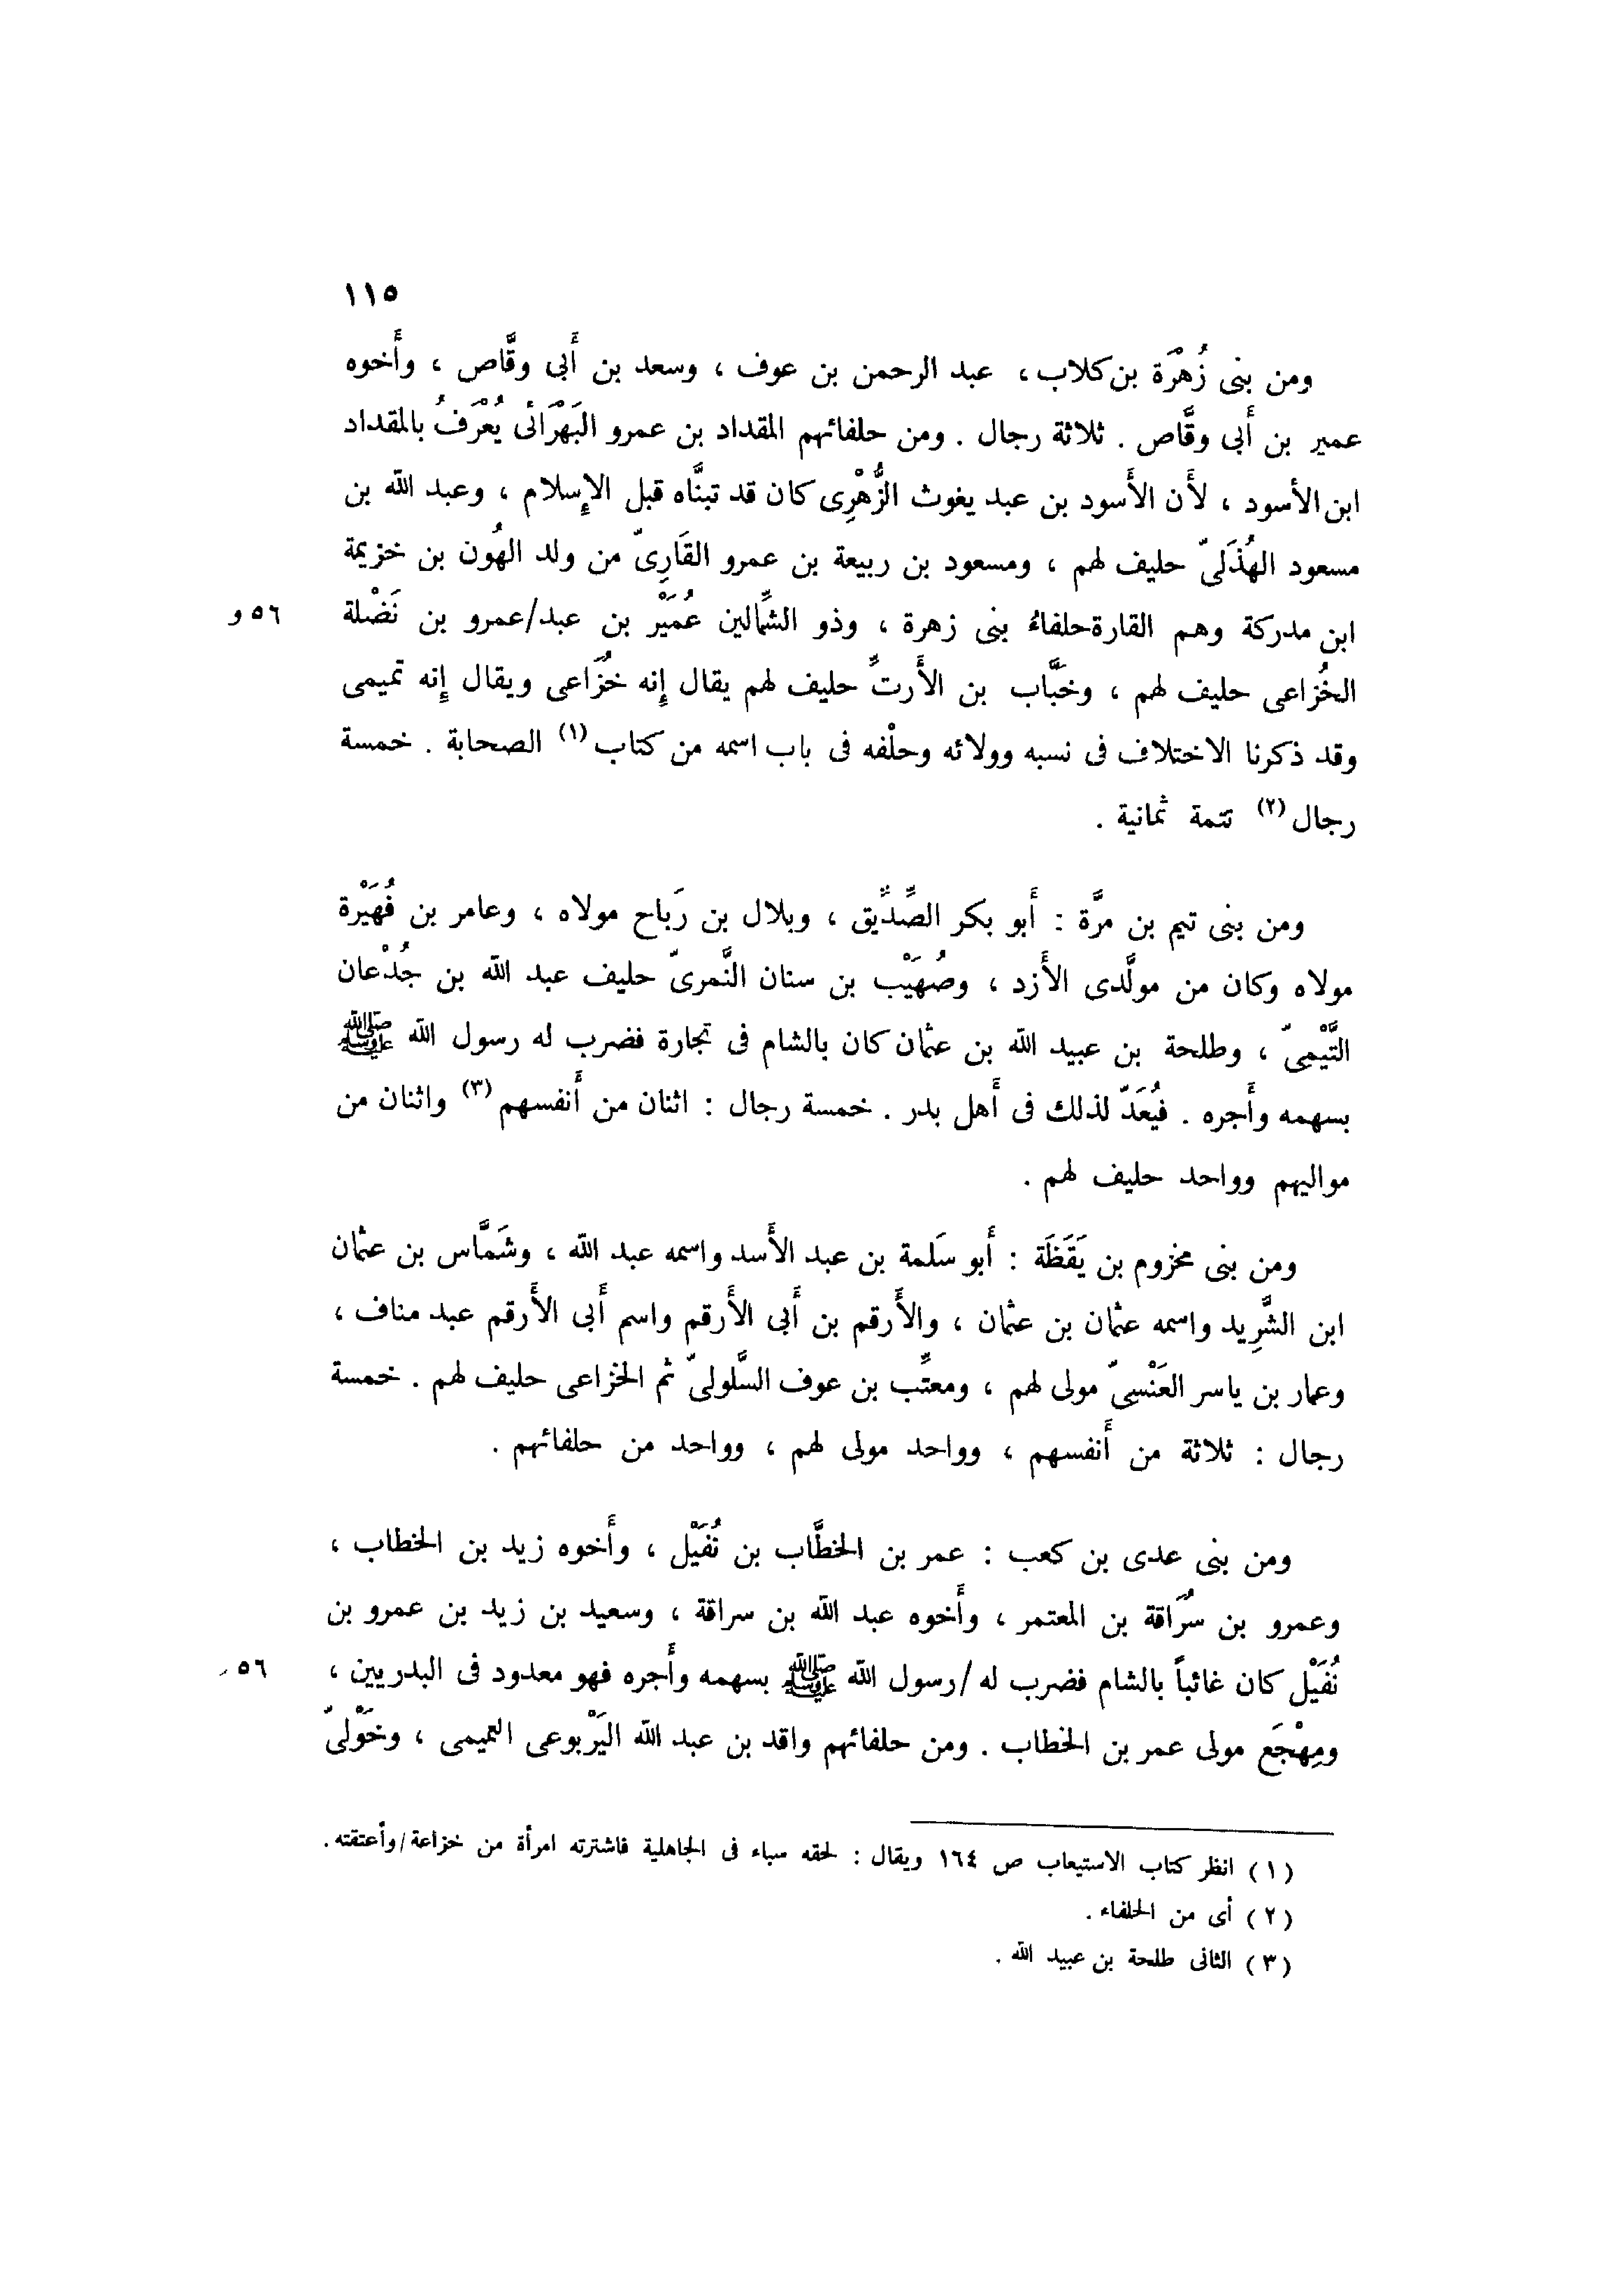 ١١٥
ومن بنى زُهْرَة بن كلاب، عبد الرحمن بن عوف ، وسعد بن أَبى وقَّاص ، وأَخوه
عمير بن أَبى وقَّاص . ثلاثة رجال . ومن حلفائهم المقداد بن عمرو البَهْرَانى يُعْرَفُ بالمقداد
ابن الأسود ، لأَن الأَسود بن عبد يغوث الزُّهْرِى كان قد تبنَّاه قبل الإِسلام ، وعبد الله بن
مسعود الهُذَلىّ حليف لهم ، ومسعود بن ربيعة بن عمرو القَارِىّ من ولد الهُون بن خزيمة
ابن مدركة وهم القارة حلفاءُ بنى زهرة ، وذو الشِّمالين عُمَيْر بن عبد/عمرو بن نَضْلة ٥٦ و
الخُزاعى حليف لهم ، وخَبَّاب بن الأَرتِّ حليف لهم يقال إِنه خُزَاعى ويقال إِنه تميمى
وقد ذكرنا الاختلاف فى نسبه وولائه وحلْفه فى باب اسمه من كتاب (١) الصحابة . خمسة
رجال (٢) تتمة ثمانية .
ومن بنى تيم بن مرَّة : أَبو بكر الصِّدِّيق ، وبلال بن رَباح مولاه ، وعامر بن فُهَيْرة
مولاه وكان من مولَّدى الأَزد ، وصُهَيْب بن سنان النَّمرىّ حليف عبد الله بن جُدْعان
التَّيْمِىّ ، وطلحة بن عبيد الله بن عثمان كان بالشام فى تجارة فضرب له رسول الله ﷺ
بسهمه وأَجره . فيُعَدّ لذلك فى أَهل بدر . خمسة رجال : اثنان من أَنفسهم (٣) واثنان من
مواليهم وواحد حليف لهم .
ومن بنى مخزوم بن يَقَظَة : أَبو سَلمة بن عبد الأَسد واسمه عبد الله ، وشَمَّاس بن عثمان
ابن الشَّرِيد واسمه عثمان بن عثمان ، والأَرقم بن أَبى الأَرقم واسم أَبى الأَرقم عبد مناف ،
وعمار بن ياسر العَنْسِىّ مولى لهم ، ومعتِّب بن عوف السَّلولىّ ثم الخزاعى حليف لهم . خمسة
رجال : ثلاثة من أَنفسهم ، وواحد مولى لهم ، وواحد من حلفائهم .
ومن بنى عدى بن كعب : عمر بن الخطَّاب بن نُفَيْل ، وأَخوه زيد بن الخطاب ،
وعمرو بن سُرَاقة بن المعتمر ، وأَخوه عبد الله بن سراقة ، وسعيد بن زيد بن عمرو بن
نُفَيْل كان غائباً بالشام فضرب له /رسول الله ﷺ بسهمه وأَجره فهو معدود فى البدريين ، ٥٦
ومِهْجَع مولى عمر بن الخطاب . ومن حلفائهم واقد بن عبد الله اليَرْبوعى التميمى ، وخَوْلىّ
(١) انظر كتاب الاستيعاب ص ١٦٤ ويقال : لحقه سباء فى الجاهلية فاشترته امرأة من خزاعة/وأعتقته.
(٢) أى من الحلفاء .
(٣) الثانى طلحة بن عبيد الله .